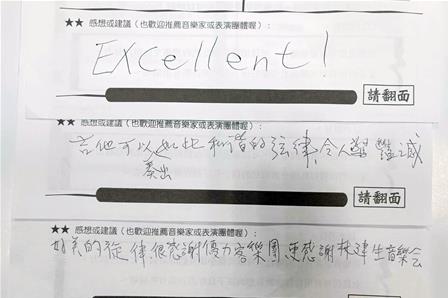 ★★ 感想或建議（也歡迎推薦音樂家或表演團體喔）：
EXcellent!
請翻面
★★ 感想或建議（也歡迎推薦音樂家或表演團體喔）：
吉他可以如此和諧的弦律,令人
奏出
請翻面
★★ 感想或建議（也歡迎推薦音樂家或表演團體喔）：
好美的旋律,很感謝優力客樂團,更感謝 津生音樂会